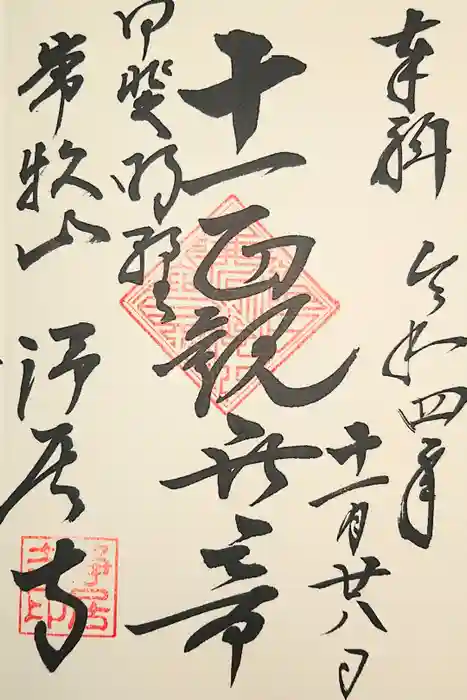 奉拝
令和四年
十一月廿八日
十一面観世音
甲斐
常牧山
浄居寺